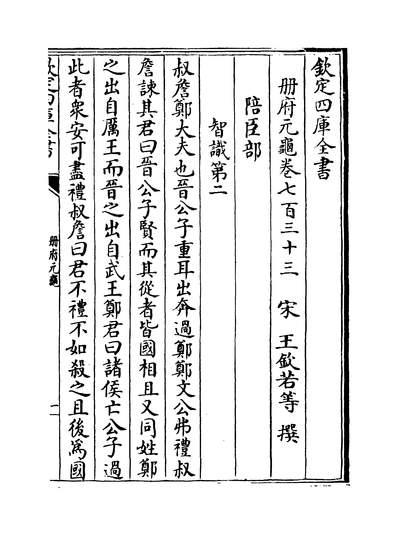 欽定四庫全書
册府元龜卷七百三十三　宋　王欽若等　撰
陪臣部
智識第二
叔詹鄭大夫也晉公子重耳出奔過鄭鄭文公弗禮叔
詹諫其君曰晉公子賢而其從者皆國相且又同姓鄭
之出自厲王而晉之出自武王鄭君曰諸侯亡公子過
此者衆安可盡禮叔詹曰君不禮不如殺之且後爲國
欽定四庫全書
册府元龜
一